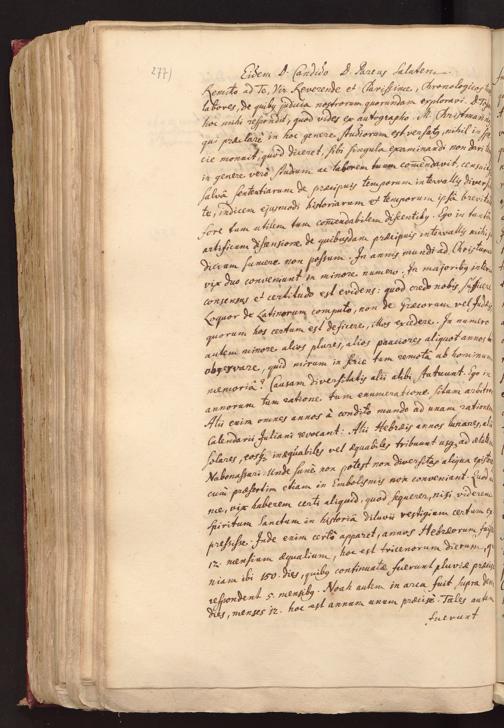 277)
Eidem D. Candido D. Pareus Salutem.
Remitto ad Te, Vir Reverende et Clarissime, Chronologicos
labores, de quibus judicia nostrorum quorundam exploravi. D.
hoc mihi respondit, quod vides ex autographo. M. Christmannus
qui praeclarè in hoc genere studiorum est versatus, nihil in
cie monuit, quod diceret, sibi singula examinandi non dari
in genere verò studium ac laborem tuum comendavit, censuit
salvâ sententiarum de praecipuis temporum intervallis
te, indicem ejusmodi historiarum et temporum ipsâ
fore tum utilem tum comendabilem discentibus. Ego in
artificum dissensione de quibusdam praecipuis intervallis mihi
dicium sumere non possum. In annis mundi ad Christum
vix duo conveniunt in minore numero. In majoribus
consensus et certitudo est evidens: quod credo nobis
Loquor de Latinorum computo, non de Graecorum vel
quorum hos certum est deficere, illos excedere. In numero
autem minore alios plures, alios pauciores aliquot annos
observare, quid mirum in serie tam remotâ ab hominum
memoria? Causam diversitatis alii alibi statuunt. Ego in
annorum tum ratione tum enumeratione sitam arbitror
Alii enim omnes annos à condito mundo ad unam rationem
Calendarii Juliani revocant: Alii Hebraeis annos lunares, alii
solares, eosque inaequabiles vel aequabiles tribuunt usque ad
Nabonassari: Unde sanè non potest non diversitas aliqua
cum praesertim etiam in Embolismis non conveniant. Quod
me, vix haberem certi aliquid, quod sequerer, nisi viderem
Spiritum Sanctum in historiâ diluvii vestigium certum
pressisse. Inde enim certò apparet, annos Hebraeorum
12. mensium aequalium, hoc est tricenorum dierum,
niam ibi 150. dies, quibus continuatae fuerunt pluviae
respondent 5. mensibus. Noah autem in arca fuit supra
dies, menses 12. hoc est annum unum praecisè. Tales autem
fuerunt